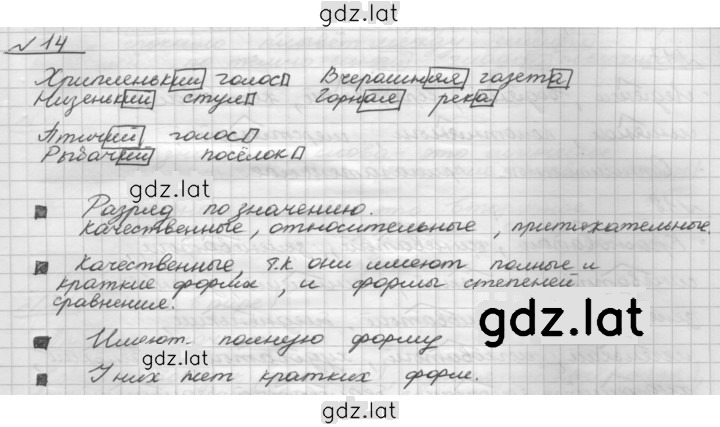 gdz.lat
№ 14
Хрипленький голос Вчерашняя газета
Низенький стул Горная река
Птичий голос
Рыбачий посёлок
gdz.lat
Разряд по значению.
Качественные, относительные, притяжательные.
Качественные, т.к они имеют полные и
краткие формы, и формы степеней
сравнения.
gdz.lat
Имеют полную форму
gdz.lat
У них нет кратких форм.
gdz.lat